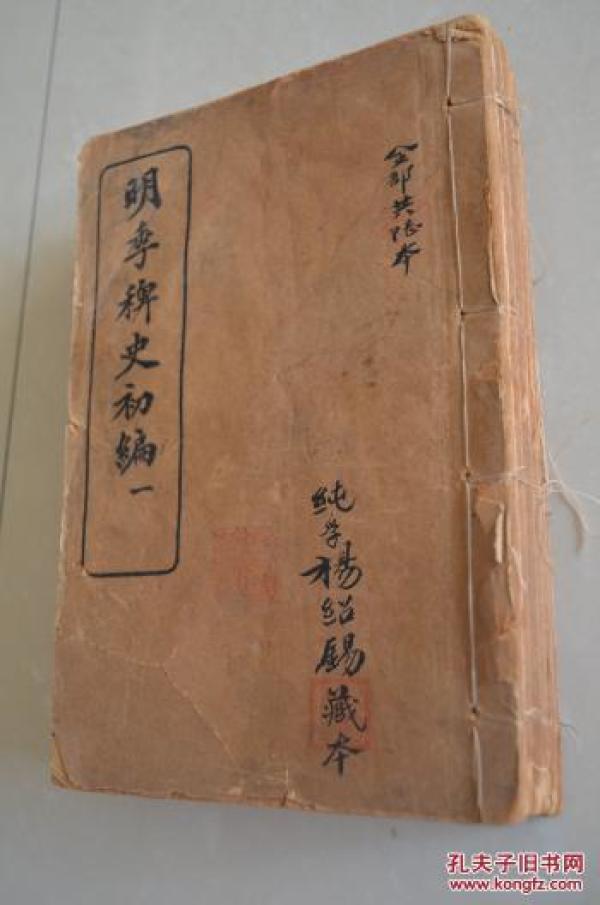 全部共陆本
純孚楊紹錫藏本
明季稗史初編一
孔夫子旧书网
www.kongfz.com